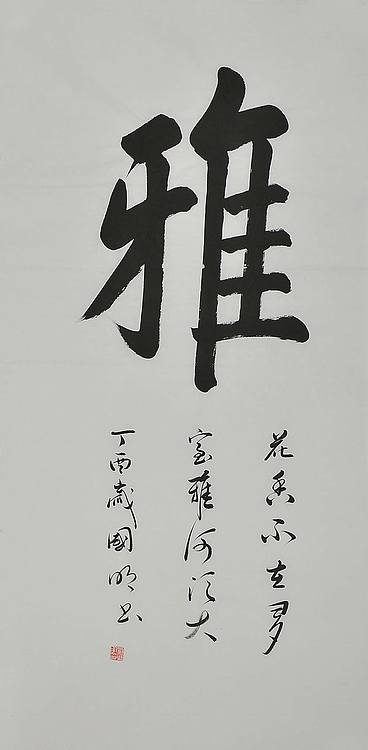 雅
花香不在多
室雅何须大
丁酉歲國明书